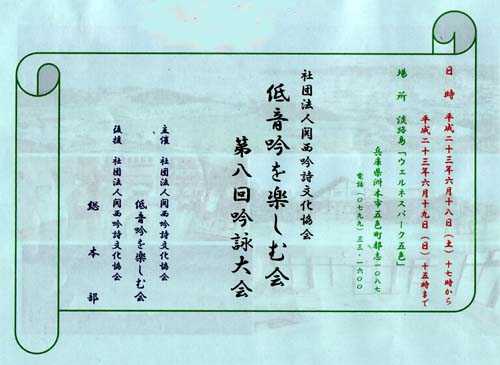 日時 平成二十三年六月十八日(土) 十七時から
平成二十三年六月十九日(日) 十五時まで
場所 淡路島「ウェルネスパーク五色」
兵庫県洲本市五色町都志一〇八七
電話(〇七九九)三三・一六〇〇
社団法人関西吟詩文化協会
低音吟を楽しむ会
第八回吟詠大会
主催 社団法人関西吟詩文化協会
低音吟を楽しむ会
後援 社団法人関西吟詩文化協会
総本部